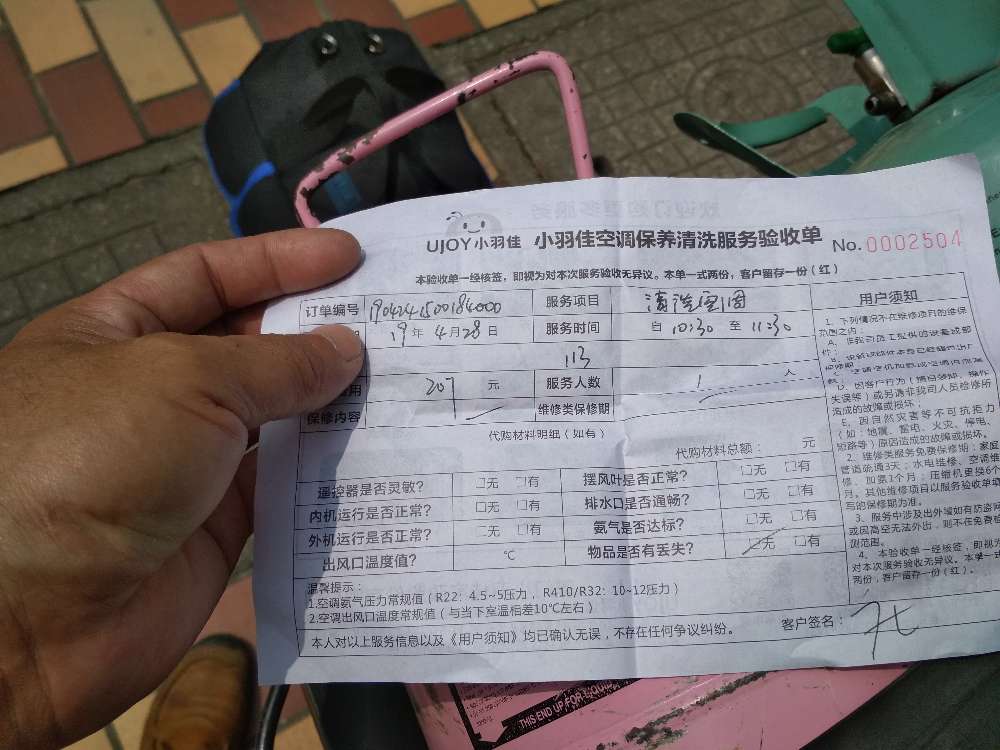 UJOY小羽佳 小羽佳空调保养清洗服务验收单 No.0002504
本验收单一经核签，即视为对本次服务验收无异议。本单一式两份，客户留存一份（红）
订单编号 1904241500184000 服务项目 清洗
19年4月28日 服务时间 自10:30至11:30
113
用 207 元 服务人数 1 人
保修内容 维修类保修期
代购材料明细（如有）
代购材料总额： 元
遥控器是否灵敏？ □无 □有 摆风叶是否正常？ □无 □有
内机运行是否正常？ □无 □有 排水口是否通畅？ □无 □有
外机运行是否正常？ □无 □有 氨气是否达标？ □无 □有
出风口温度值？ ℃ 物品是否有丢失？ □无 □有
温馨提示：
1.空调氨气压力常规值（R22：4.5~5压力，R410/R32：10~12压力）
2.空调出风口温度常规值（与当下室温相差10℃左右）
本人对以上服务信息以及《用户须知》均已确认无误，不存在任何争议纠纷。 客户签名：
用户须知
1、下列情况不在维修项目的维保
范围之内：
A、非我司员工提供的设备或部
件；
D、因客户行为（擅自领卸、操作
失误等）或另请非我司人员检修所
造成的故障或损坏。
E、因自然灾害等不可抗拒力
（如：地震、雷电、火灾、停电、
短路等）原因造成的故障或损坏。
2、维修类服务免费保修期：家庭
管道疏通3天；水电维修、空调维
修、加氨1个月；压缩机更换6个
月。其他维修项目以服务验收单填
写的保修期为准。
3、服务中涉及出外墙如有防盗网
或因高空无法外出，则不在免费检
测范围。
4、本验收单一经核签，即视为
对本次服务验收无异议。本单一式
两份，客户留存一份（红）。
THIS END UP FOR